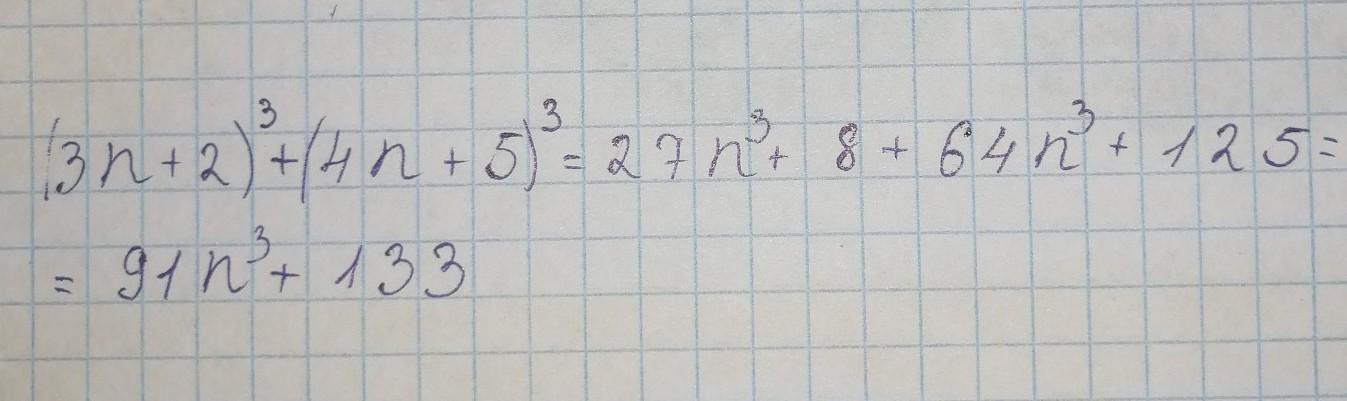 (3n+2)³+(4n+5)³=27n³+8+64n³+125=
=91n³+133